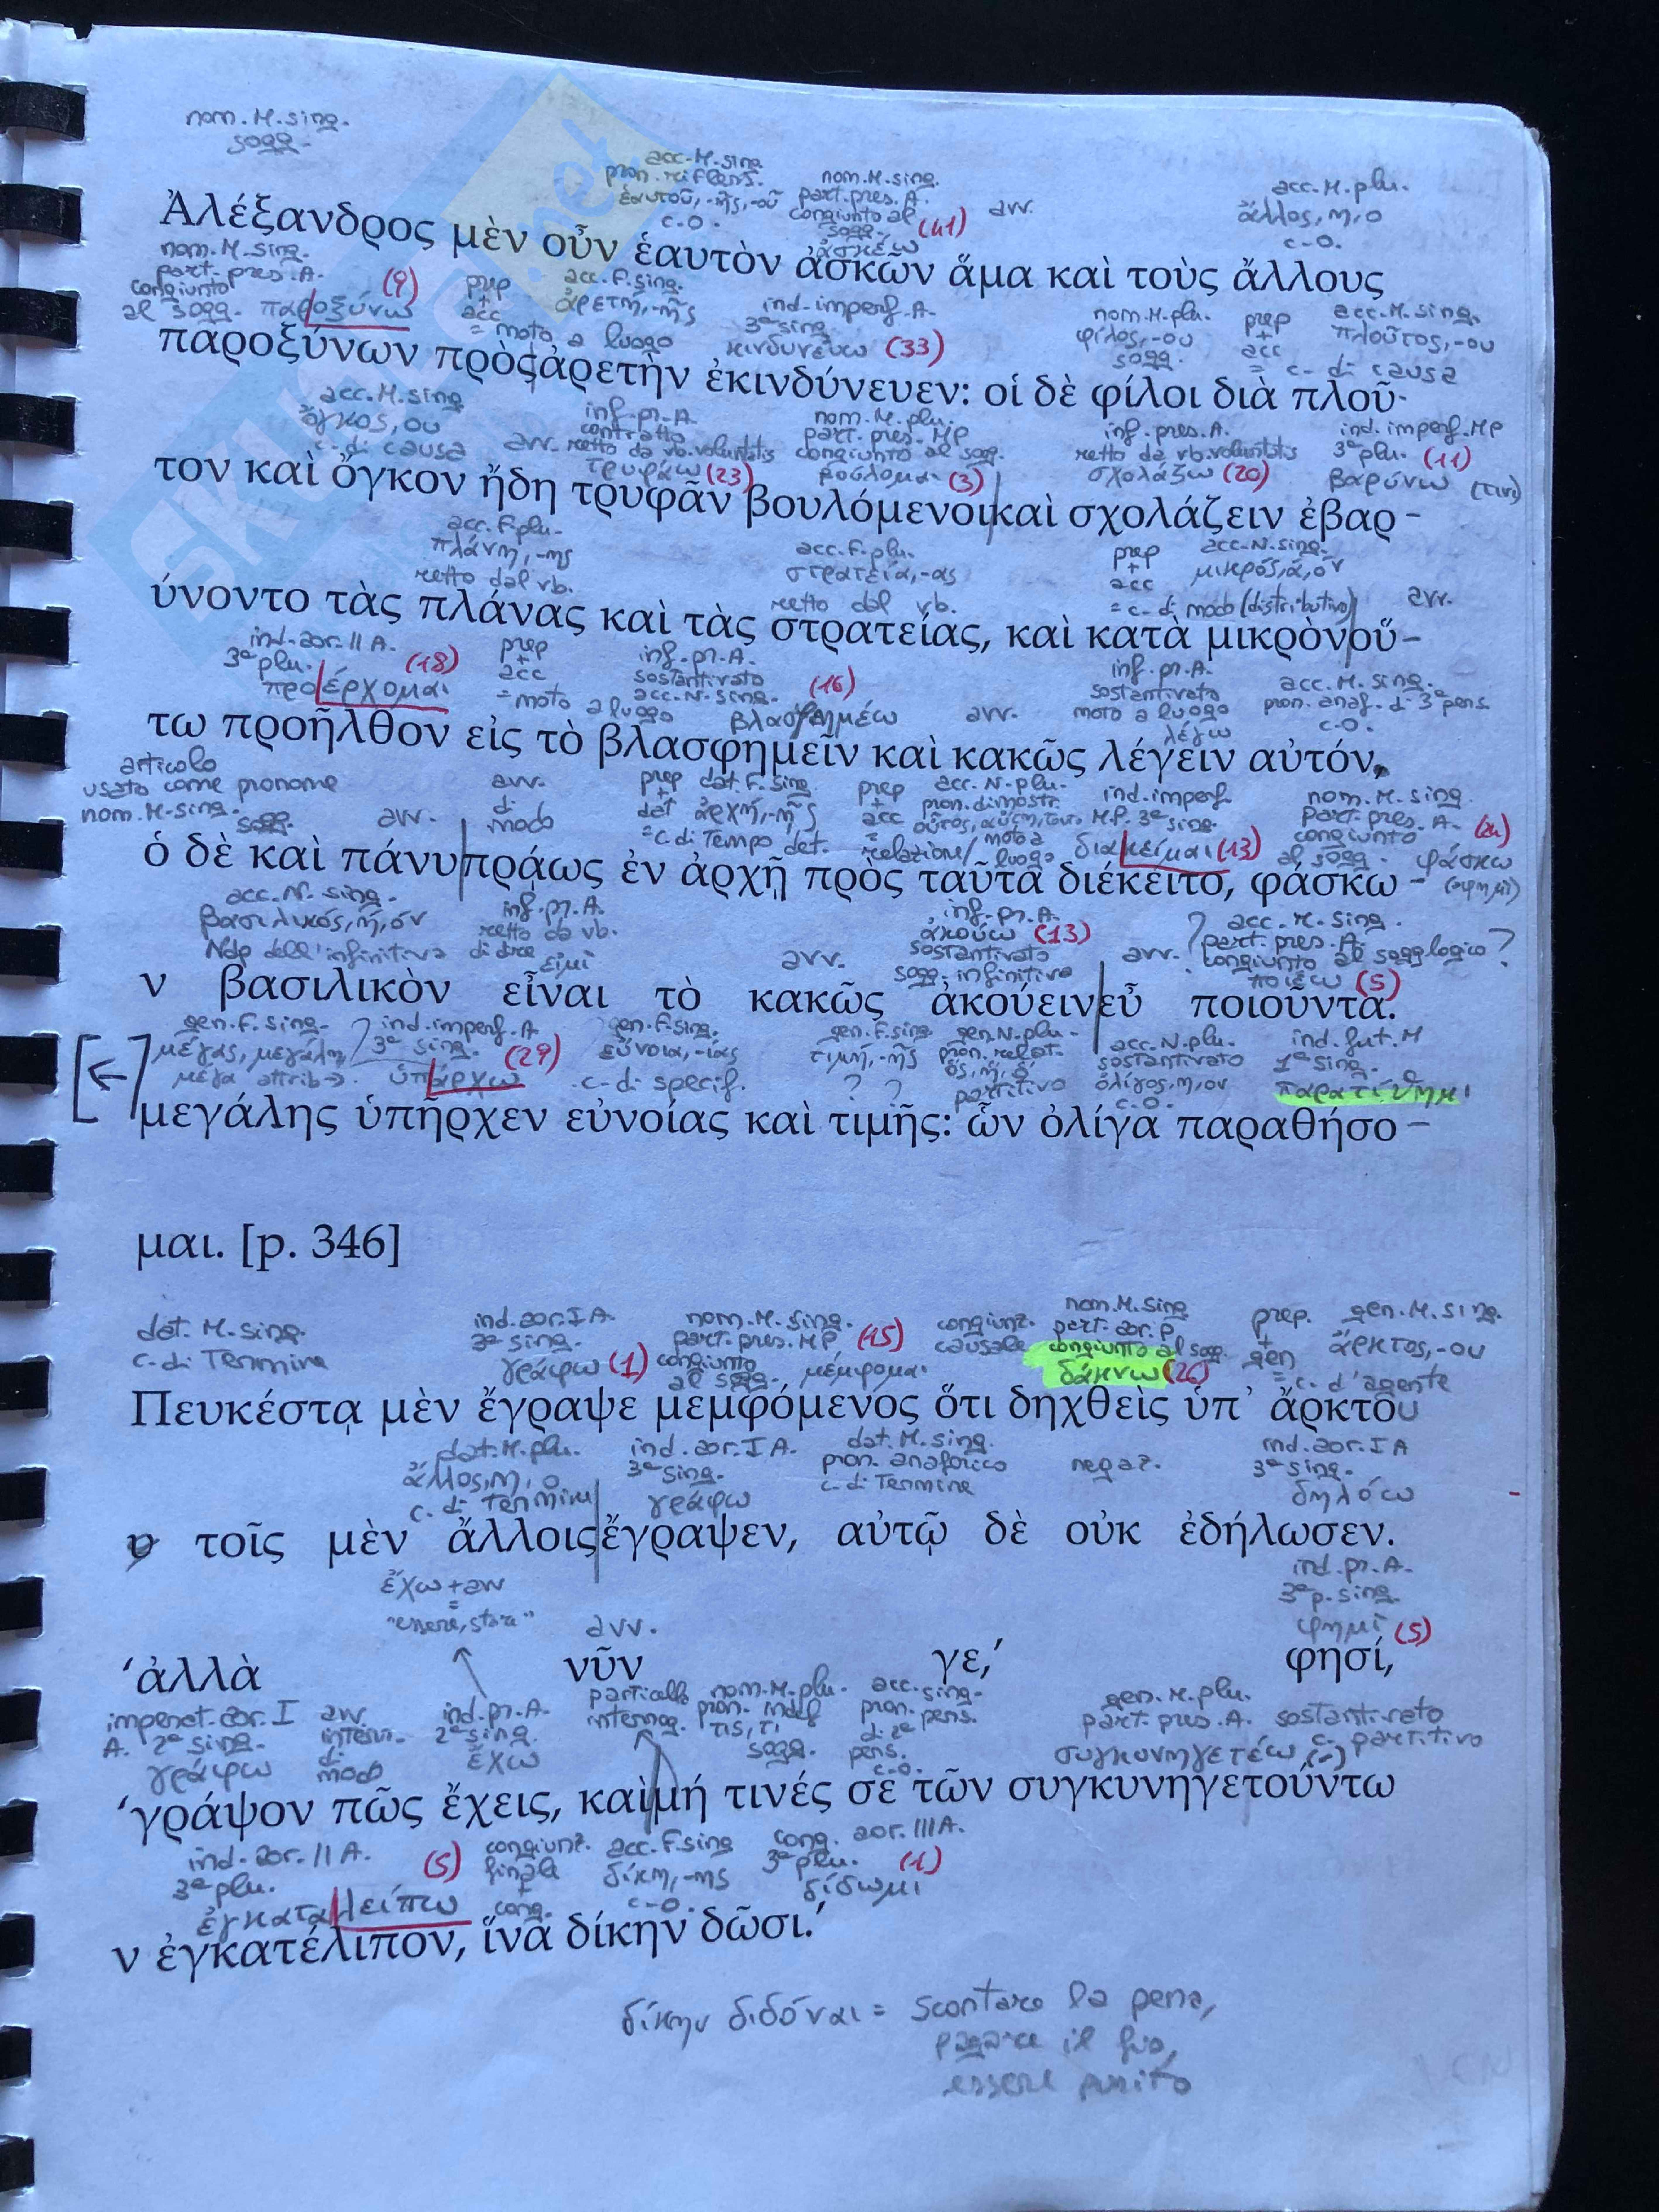 nom. M. sing.
sogg.
acc. M. sing
pron. rifless. nom. M. sing. acc. M. plu.
ἑαυτοῦ, -ῆς, -οῦ part. pres. A. avv. ἄλλος, η, ο
c.o. congiunto al sogg. (41) c.o.
ἀσκέω
Ἀλέξανδρος μὲν οὖν ἑαυτὸν ἀσκῶν ἅμα καὶ τοὺς ἄλλους
nom. M. sing.
part. pres. A. (9) prep acc. F. sing. ind. imperf. A. nom. M. plu. prep acc. M. sing.
congiunto + acc ἀρετή, -ῆς 3ª sing. φίλος, -ου + acc πλοῦτος, -ου
al sogg. παροξύνω = moto a luogo κινδυνεύω (33) sogg. = c. di causa
παροξύνων πρὸς ἀρετὴν ἐκινδύνευεν: οἱ δὲ φίλοι διὰ πλοῦ-
acc. M. sing inf. pr. A. nom. M. plu. inf. pres. A. ind. imperf. MP
ὄγκος, ου contratto part. pres. MP retto da vb. voluntatis 3ª plu. (11)
c. di causa avv. retto da vb. voluntatis congiunto al sogg. σχολάζω (20) βαρύνω (τινι)
τρυφάω (23) βούλομαι (3)
τον καὶ ὄγκον ἤδη τρυφᾶν βουλόμενοι καὶ σχολάζειν ἐβαρ-
acc. F. plu. acc. F. plu. prep acc. N. sing.
πλάνη, -ης στρατεία, -ας + acc μικρός, ά, όν
retto dal vb. retto dal vb. = c. di modo (distributivo) avv.
ύνοντο τὰς πλάνας καὶ τὰς στρατείας, καὶ κατὰ μικρὸν οὕ-
ind. aor. II A. prep inf. pr. A. inf. pr. A.
3ª plu. (18) + acc sostantivato (16) sostantivato acc. M. sing.
προέρχομαι = moto a luogo acc. N. sing. βλασφημέω avv. moto a luogo pron. anaf. di 3ª pers.
λέγω c.o.
τω προῆλθον εἰς τὸ βλασφημεῖν καὶ κακῶς λέγειν αὐτόν,
articolo
usato come pronome avv. prep dat. F. sing. prep acc. N. plu. ind. imperf. nom. M. sing.
nom. M. sing. sogg. avv. di modo + dat ἀρχή, -ῆς + acc pron. dimostr. M.P. 3ª sing. part. pres. A. (24)
= c. di Tempo det. = relazione / moto a luogo διάκειμαι (13) congiunto al sogg. φάσκω
ὁ δὲ καὶ πάνυ πρᾴως ἐν ἀρχῇ πρὸς ταῦτα διέκειτο, φάσκω- (φημί)
acc. N. sing. inf. pr. A. inf. pr. A. ? acc. M. sing.
βασιλικός, ή, όν retto da vb. ἀκούω (13) part. pres. A.
Ndp dell'infinitiva di dire avv. sostantivato avv. congiunto al sogg logico ?
εἰμί sogg. infinitiva ποιέω (5)
ν βασιλικὸν εἶναι τὸ κακῶς ἀκούειν εὖ ποιοῦντα.
gen. F. sing. ind. imperf. A. gen. F. sing. gen. F. sing gen. N. plu. acc. N. plu. ind. fut. M
μέγας, μεγάλη, 3ª sing. (29) εὔνοια, -ίας τιμή, -ῆς pron. relat. sostantivato 1ª sing.
μέγα attrib → ὑπάρχω c. di specif. ? ? ὅς, ἥ, ὅ partitivo ὀλίγος, η, ον c.o. παρατίθημι
μεγάλης ὑπῆρχεν εὐνοίας καὶ τιμῆς: ὧν ὀλίγα παραθήσο-
μαι. [p. 346]
dat. M. sing. ind. aor. I A. nom. M. sing. congiunz. nom. M. sing prep. gen. M. sing.
c. di Termine 3ª sing. part. pres. MP (15) causale part. aor. P + gen ἄρκτος, -ου
γράφω (1) congiunto al sogg. μέμφομαι congiunto al sogg. δάκνω (26) = c. d'agente
Πευκέστᾳ μὲν ἔγραψε μεμφόμενος ὅτι δηχθεὶς ὑπ' ἄρκτου
dat. M. plu. ind. aor. I A. dat. M. sing. ind. aor. I A
ἄλλος, η, ο 3ª sing. pron. anaforico negaz. 3ª sing.
c. di Termine γράφω c. di Termine δηλόω
υ τοῖς μὲν ἄλλοις ἔγραψεν, αὐτῷ δὲ οὐκ ἐδήλωσεν.
ἔχω + avv ind. pr. A.
= 3ª p. sing.
"essere, stare" avv. φημί (5)
'ἀλλὰ νῦν γε,' φησί,
imperat. aor. I avv. ind. pr. A. particella nom. M. plu. acc. sing. gen. M. plu.
A. 2ª sing. interr. 2ª sing. interrog. pron. indef pron. pers. part. pres. A. sostantivato
γράφω di modo ἔχω τις, τι sogg. di 2ª pers. c.o. συγκυνηγετέω (-) c. partitivo
'γράψον πῶς ἔχεις, καὶ μή τινές σε τῶν συγκυνηγετούντω
ind. aor. II A. (5) congiunz. acc. F. sing cong. aor. III A.
3ª plu. finale δίκη, -ης 3ª plu. (1)
ἐγκαταλείπω + cong. c.o. δίδωμι
ν ἐγκατέλιπον, ἵνα δίκην δῶσι.'
δίκην διδόναι = scontare la pena,
pagare il fio,
essere punito